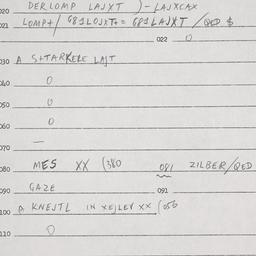 020 DER LOMP LAJXT )- LAJXCAX
021 LOMP+/ G81LOJXT+= G81LAJXT /QED $
022 O
030 A S+TARKERE LAJT
040 O
050 O
060 O
070 —
080 MES XX (380 081 ZILBER/QED
090 GAZE 091
100 A KNEJTL IN XEJLEV XX (056
110 O